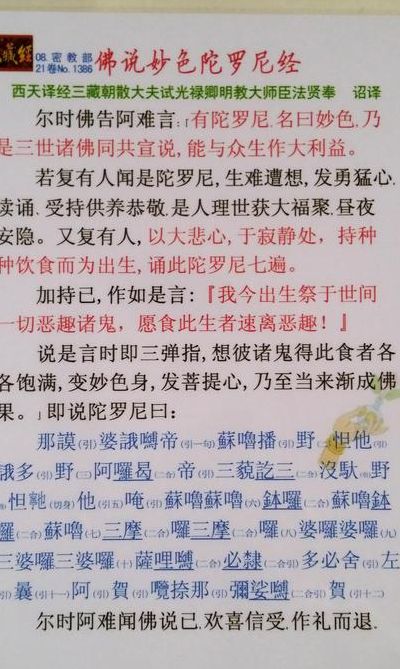 藏经 08.密教部
21卷No.1386 佛说妙色陀罗尼经
西天译经三藏朝散大夫试光禄卿明教大师臣法贤奉 诏译
尔时佛告阿难言:「有陀罗尼.名曰妙色,乃
是三世诸佛同共宣说,能与众生作大利益。
若复有人闻是陀罗尼,生难遭想,发勇猛心.
读诵.受持供养恭敬.是人理世获大福聚.昼夜
安隐。又复有人,以大悲心,于寂静处,持种
种饮食而为出生,诵此陀罗尼七遍。
加持已,作如是言:『我今出生祭于世间
一切恶趣诸鬼,愿食此生者速离恶趣!』
说是言时即三弹指,想彼诸鬼得此食者各
各饱满,变妙色身,发菩提心,乃至当来渐成佛
果。」即说陀罗尼曰:
那謨(引)婆誐嚩帝(引一句)蘇嚕播(引)野(二)怛他(引)
誐多(引)野(三)阿囉曷(二合)帝(引)三藐訖三(二合)沒馱(引)野
怛(切身)他(引五)唵(引)蘇嚕蘇嚕(六)鉢囉(二合)蘇嚕鉢
囉(二合)蘇嚕(七)三摩(二合)囉三摩(二合)囉(八)婆囉婆囉(九)
三婆囉三婆囉(十)薩哩嚩(二合)必隸(二合引)多必舍(引)左
(引)曩(引十一)阿(引)賀(引)囉捺那(引)彌娑嚩(二合引)賀(引十二)
尔时阿难闻佛说已.欢喜信受.作礼而退.